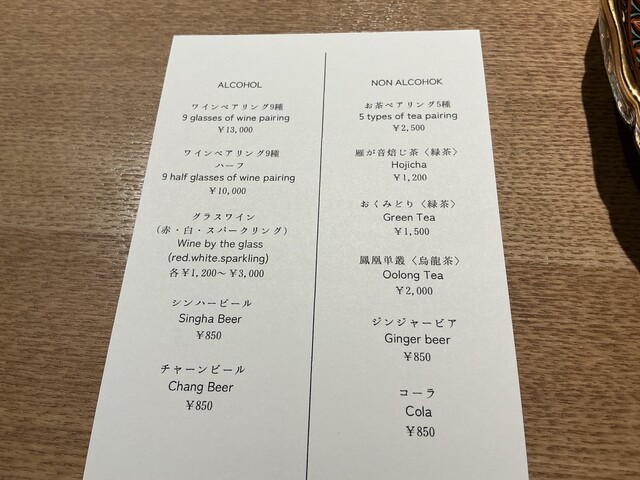 ALCOHOL
ワインペアリング9種
9 glasses of wine pairing
￥13,000
ワインペアリング9種
ハーフ
9 half glasses of wine pairing
￥10,000
グラスワイン
（赤・白・スパークリング）
Wine by the glass
(red.white.sparkling)
各￥1,200～￥3,000
シンハービール
Singha Beer
￥850
チャーンビール
Chang Beer
￥850
NON ALCOHOK
お茶ペアリング5種
5 types of tea pairing
￥2,500
雁が音焙じ茶〈緑茶〉
Hojicha
￥1,200
おくみどり〈緑茶〉
Green Tea
￥1,500
鳳凰単叢〈烏龍茶〉
Oolong Tea
￥2,000
ジンジャービア
Ginger beer
￥850
コーラ
Cola
￥850